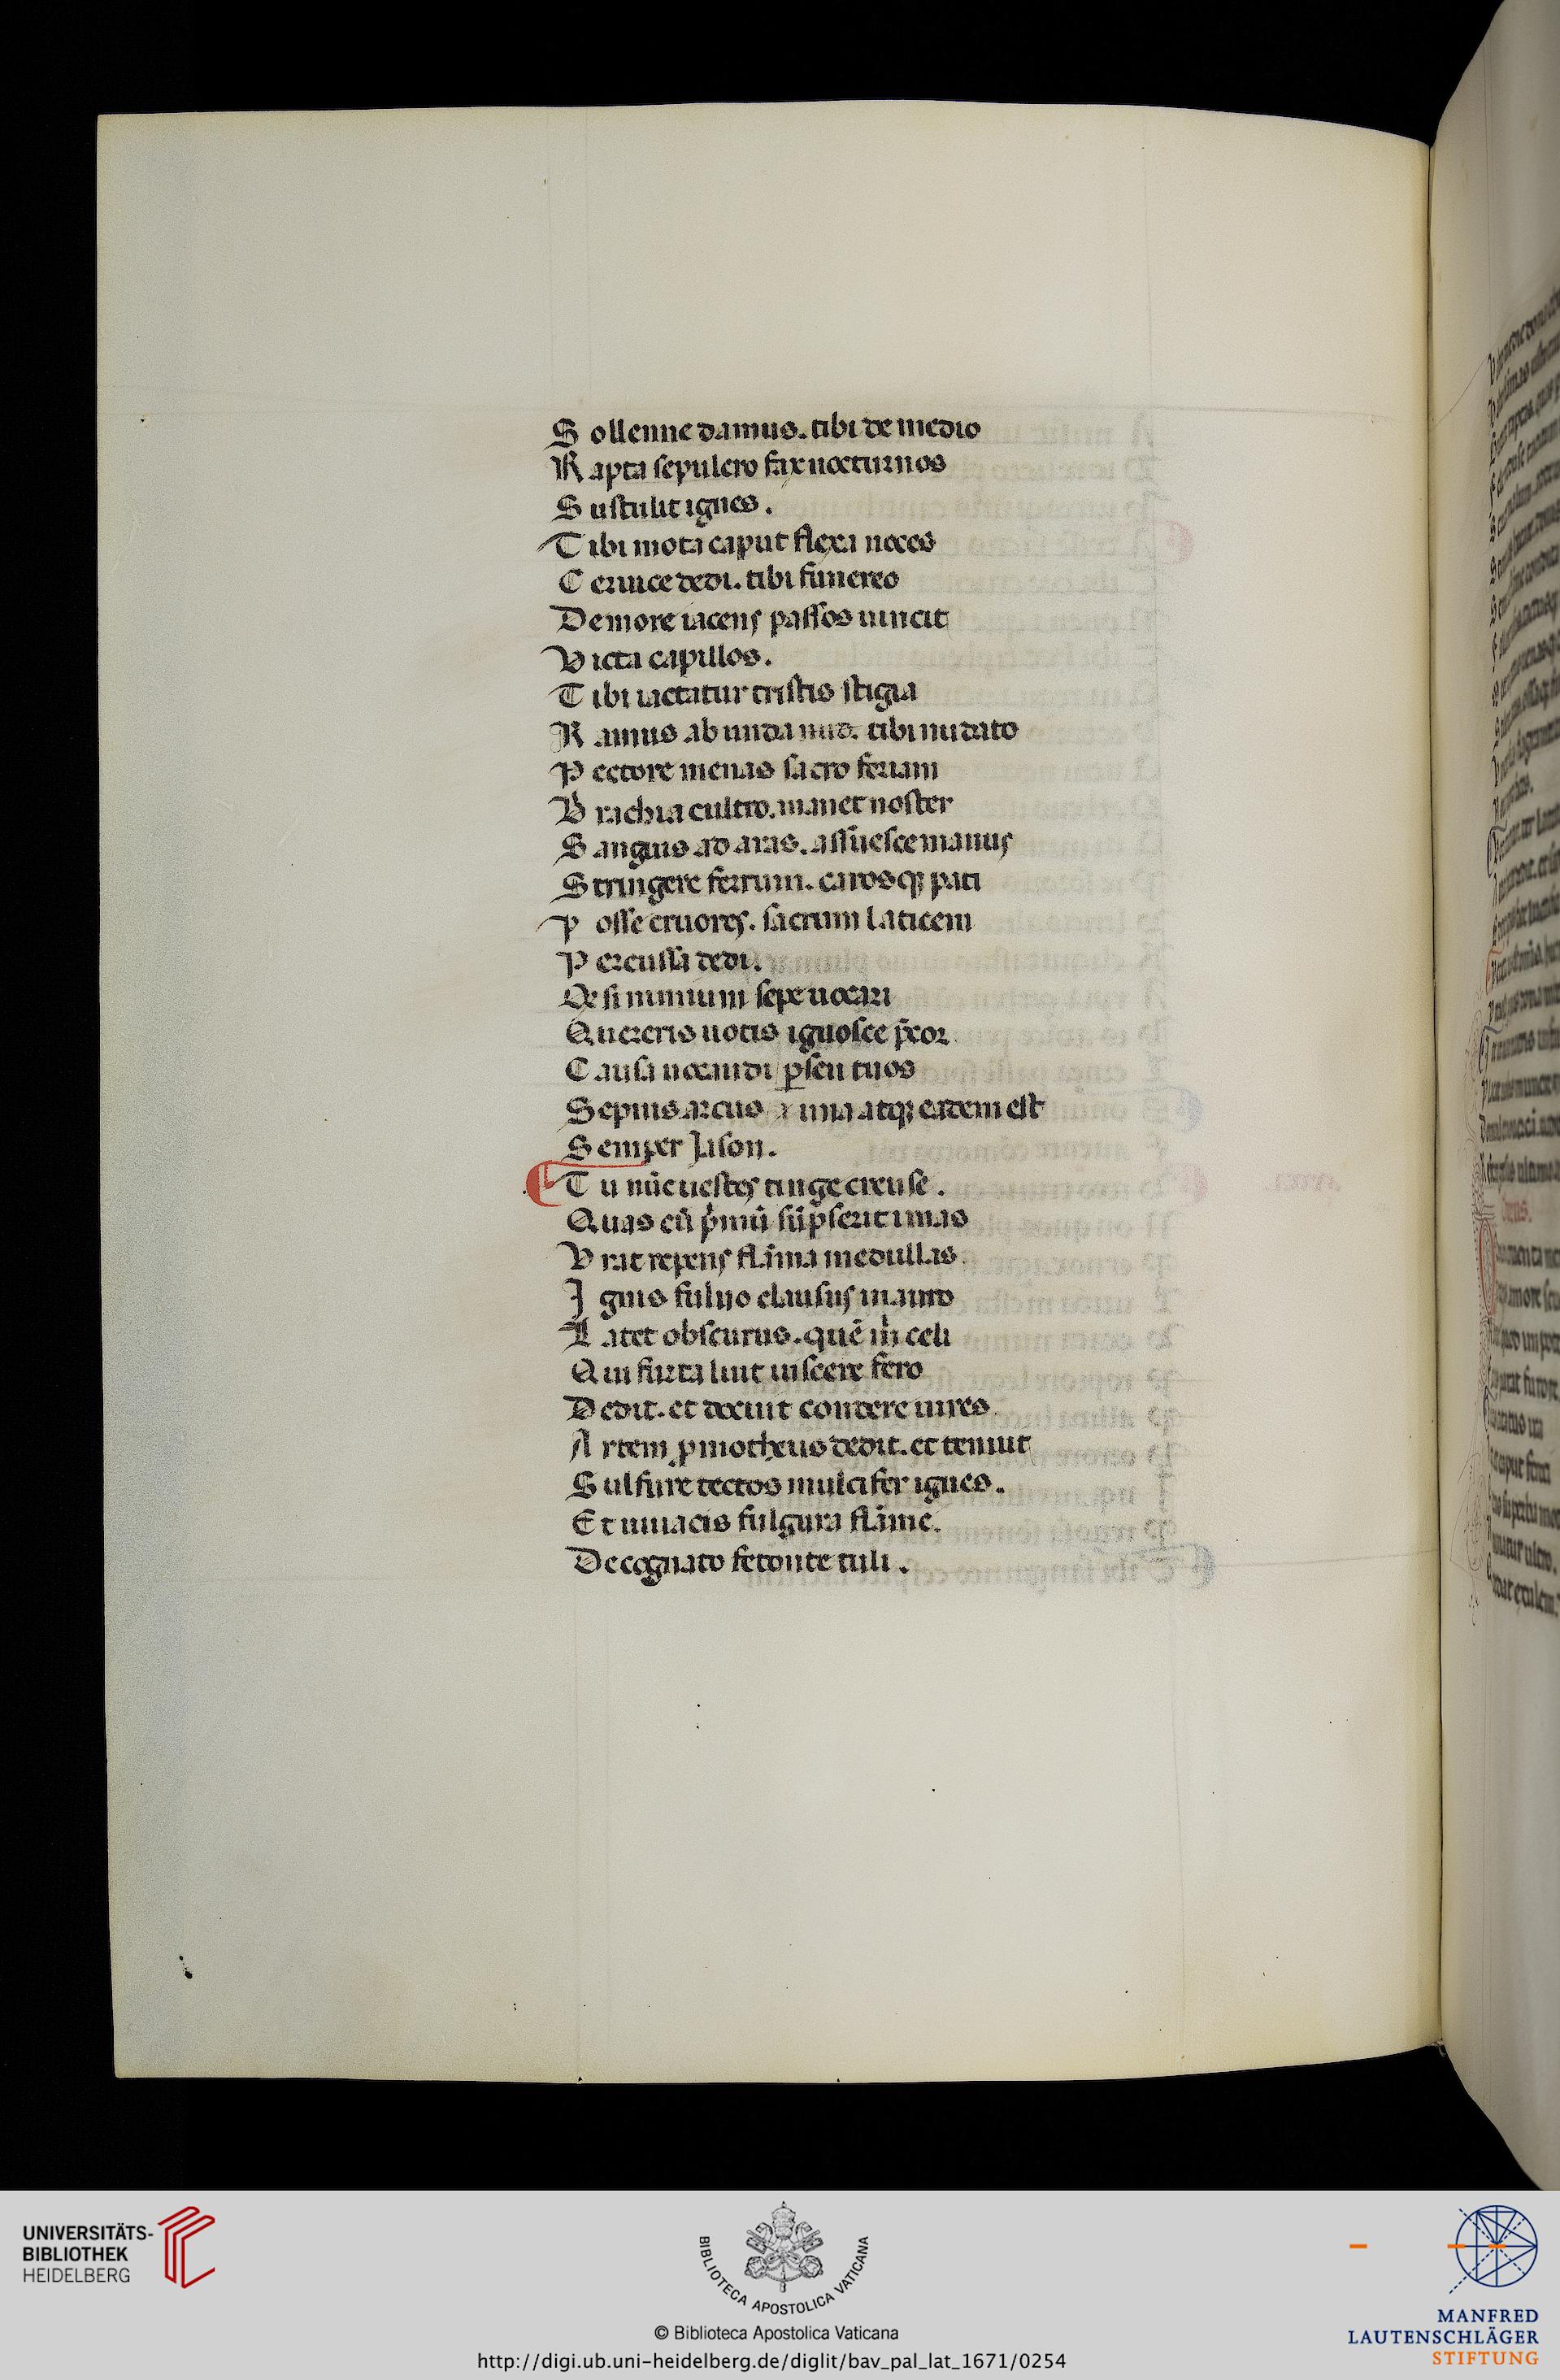 Sollenne damus. tibi de medio
Rapta sepulcro fax nocturnos
Sustulit ignes.
Tibi mota caput flexa noces
Ceruice dedi. tibi funereo
De more iacens passos uincit
Victa capillos.
Tibi iactatur tristis stigia
Ramus ab unda tibi nudato
Pectore menas sacro feriam
Brachia cultro. manet noster
Sanguis ad aras. assuesce manus
Stringere ferrum. carosqꝫ pati
Posse cruores. sacrum laticem
Percussa dedi.
Qd si nimium sepe uocari
Quereris uotis ignosce p̄cor
Causa uocandi ꝑseu tuos
Sepius arcus una atqꝫ eadem est
Semper Jason.
Tu nūc uestes tinge creuse.
Quas cū p̄mū sūpserit imas
Vrat repens flāma medullas.
Ignis fuluo clausus in auro
Latet obscurus. quē m̄ celi
Qui furta luit uiscere feto
Dedit. et docuit condere uires
Artem p̱motheus dedit. et tenuit
Sulfure tectos mulcifer ignes.
Et uiuacis fulgura flāme.
De cognato fetonte tuli.
UNIVERSITÄTS-
BIBLIOTHEK
HEIDELBERG
BIBLIOTECA APOSTOLICA VATICANA
© Biblioteca Apostolica Vaticana
http://digi.ub.uni-heidelberg.de/diglit/bav_pal_lat_1671/0254
MANFRED
LAUTENSCHLÄGER
STIFTUNG